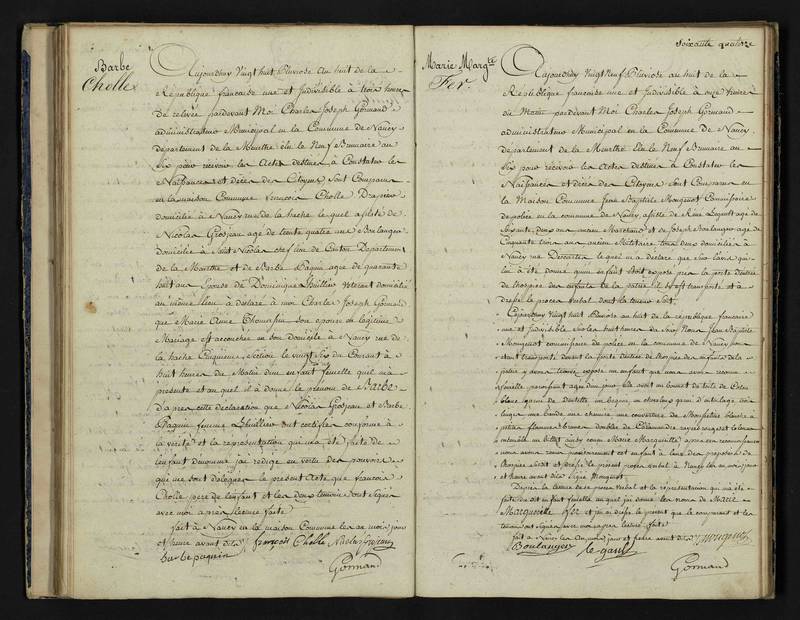 Barbe
Cholle
Aujourdhuy Vingt huit Pluviose an huit de la
République francaise une et Indivisible à trois heures
de relevée pardevant Moi Charles Joseph Gormand
administrateur Municipal en la Commune de Nancy
département de la Meurthe élu le Neuf Brumaire an
Six pour recevoir les Actes destinés à Constater les
Naissances et décès des Citoyens, sont Comparus
en la maison Commune francois Cholle Drapier
domicilié à Nancy rue de la hache lequel assisté de
Nicolas Grosjean agé de trente quatre ans Boulanger
domicilié à Nicolas chef lieu de Canton Département
de la Meurthe et de Barbe Paquin agée de quarante
huit ans Epouse de Dominique Lhuillier domicilié
au même lieu a déclaré à moi Charles Joseph Gormand
que Marie Anne Thomassin son epouse en légitime
Mariage est accouchée en son domicile à Nancy rue de
la hache Cinquieme Section le vingt Six du Courant à
huit heures du Matin d'un enfant femelle quil m'a
présenté et auquel il a donné le prénom de Barbe
D'après cette déclaration que Nicolas Grosjean et Barbe
Paquin femme Lhuillier ont certifiée conforme à
la vérité et la représentation qui m'a été faite de
lenfant dénommé j'ai rédigé en vertu des pouvoirs
qui me sont délégués le présent Acte que francois
Cholle pere de lenfant et les deux témoins ont signé
avec moi après lecture faite
fait à Nancy en la maison Commune les an mois jour
et heure avant dits françois Cholle Nicolas Grosjean
barbe paquin
Gormand
soixante quatorze
Marie Margte
Fer.
Aujourdhuy Vingt Neuf Pluviose an huit de la
République francaise une et Indivisible à onze heures
du Matin pardevant Moi Charles Joseph Gormand
administrateur Municipal en la Commune de Nancy
département de la Meurthe élu le Neuf Brumaire an
Six pour recevoir les Actes destinés à Constater les
Naissances et décès des Citoyens, sont Comparus en
la Maison Commune Jean Baptiste Mougenot Commissaire
de police en la commune de Nancy assisté de agé de
Soixante deux ans ancien Marchand et de Joseph Boulanger agé de
Cinquante trois ans ancien Militaire tous deux domiciliés à
Nancy lequel m'a déclaré que sur l'avis qui
lui a été donné quun enfant était exposé près la porte d'entrée
de lhospice des enfants de la patrie il s'y est transporté et a
dressé le procès verbal dont la teneur suit.
Cejourdhuy Vingt huit Pluviose an huit de la république francaise
une et indivisible sur les huit heures du Soir Nous Jean Baptiste
Mougenot commissaire de police en la commune de Nancy
étant transporté devant la porte d'entrée de lhospice des enfants de la
patrie y avons trouvé exposé un enfant que nous avons reconnu
femelle paroissant agée d'un jour
Marie Marguerite
hospice susdit et dressé le présent procès verbal à Nancy les an mois jour
et heure avant dits Signé Mougenot
Depuis la lecture de ce procès verbal et la représentation qui m'a été
faite du dit enfant femelle auquel j'ai donné les noms de Marie
Marguerite Fer
témoins ont signé avec moi après lecture faite
fait à Nancy les an mois jour et heure avant dits Mougenot
Boulanger le gault
Gormand